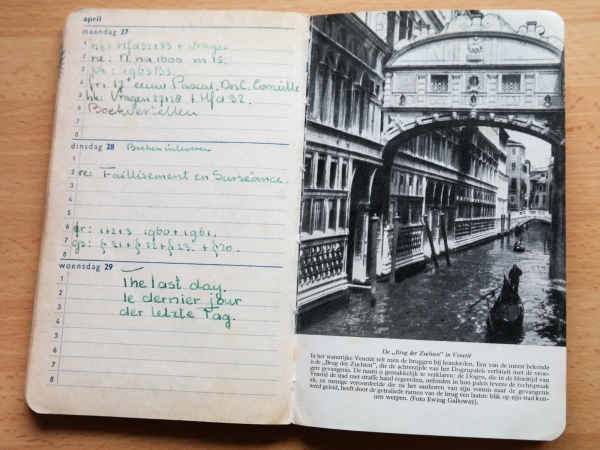 april
maandag 27
1 hk: Hfd 32+33 + vragen
2 ne: N. na 1600 m 15.
3 bh: 1963 B3.
4 fr: 17e eeuw Pascal, Desc. Corneille
5 hk: Vragen 27128 + Hfd 32.
6 Boekverzetten
7
8
dinsdag 28 Boeken inleveren
1
2 re: Faillisement en Surséance.
3
4
5
6 fr: 1+2+3 1960 + 1961.
7 gs: § 21 + § 22 + § 23. + § 20.
8
woensdag 29
1 The last day.
2 le dernier jour
3 der letzte Tag.
4
5
6
7
8
De „Brug der Zuchten” in Venetië
In het waterrijke Venetië telt men de bruggen bij honderden. Een van de meest bekende
is de „Brug der Zuchten”, die de achterzijde van het Dogenpaleis verbindt met de vroe-
gere gevangenis. De naam is gemakkelijk te verklaren: de Dogen, die in de bloeitijd van
Venetië de stad met straffe hand regeerden, oefenden in hun paleis tevens de rechtspraak
uit, en menige veroordeelde die na het aanhoren van zijn vonnis naar de gevangenis
werd geleid, heeft door de getraliede ramen van de brug een laatste blik op zijn stad kun-
nen werpen. (Foto Ewing Galloway).